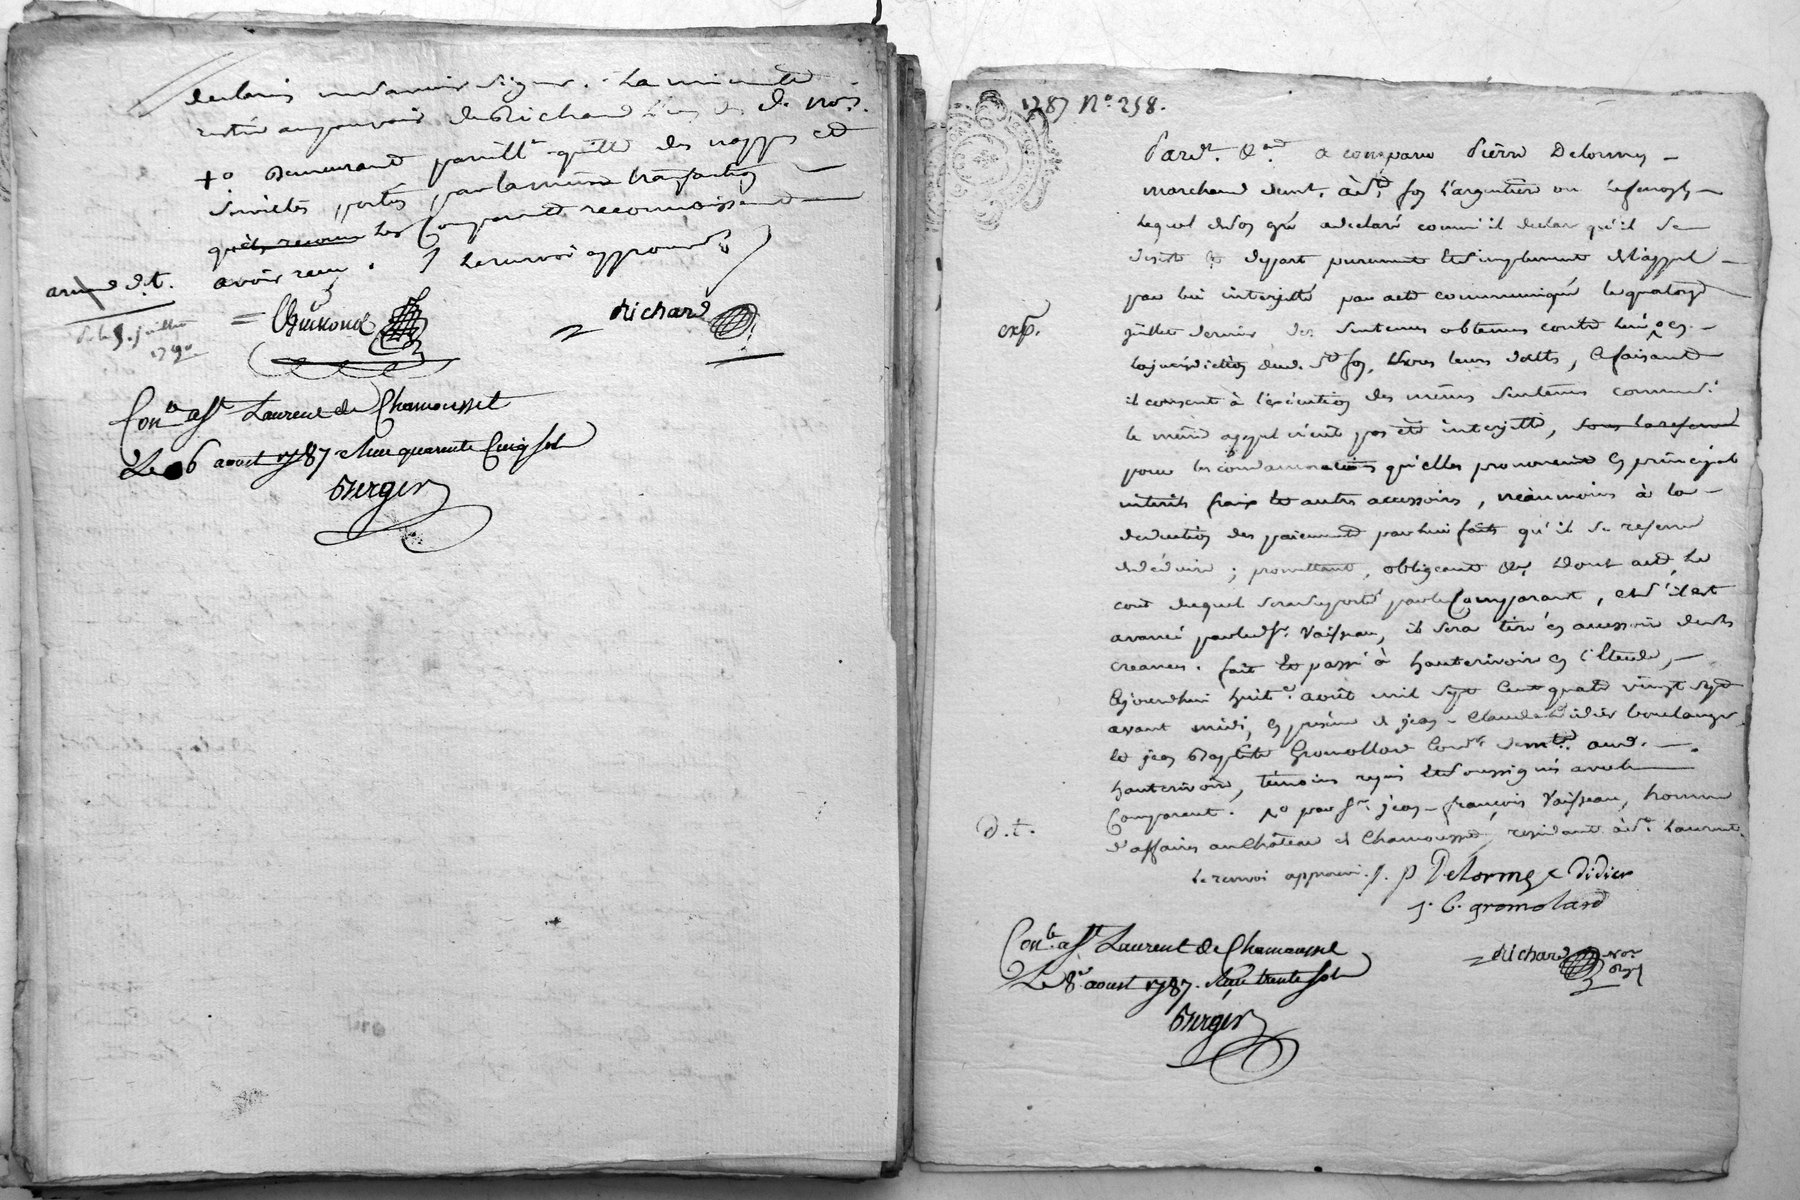 declarés ne savoir signer. La minutte
restée au pouvoir de Richard l'un des d. nores.
+o Demeurant pareillt. quitte des nappes et
serviettes portés par la même transaction
que les comparants reconnoissent
avoir reçu. / Le renvoi approuvé
d.t.
Guinond
Richard
Conlé. à St Laurent de Chamousset
Le 6 aoust 1787. Reçu quarante Cinq sols
Berger
1787 No. 258.
Pardt. &a. a comparu Pierre Delorme
marchand demt. à Ste. foy l'argentière en
Lequel de son gré a declaré comme il declare qu'il se
desiste & depart purement et simplement de l'appel
par lui interjetté par acte communiqué le quatorze
juillet dernier des sentences obtenues contre lui en
la juridiction dud. Ste foy, suivant leurs dattes, ce faisant
exp.
il consent à l'exécution des mêmes sentences comme si
le même appel n'eut pas été interjetté, sous la reserve
pour les condamnations qu'elles prononcent en principal
interets fraix et autres accessoires, néanmoins à la
deduction des paiements par lui faits qu'il se reserve
de déduire ; promettant, obligeant &c, Dont acte, Le
cout duquel sera suporté par le Comparant, et s'il est
avancé par led. Sr. Vaisseau, il sera tiré en accessoire desd.
creances. fait et passé à hauterivoire en l'étude,
Cejourdhui huite. août mil sept cent quatre vingt sept
avant midi, en présence de jean-Claude Didier boulanger
et jean Baptiste Gromollard demts. aud.
hauterivoire, témoins requis et soussignés avec le
Comparant. +o par Sr. jean-françois Vaisseau, homme
d'affaires au Château de Chamousset, residant à St. Laurent.
d.t.
Le renvoi approuvé. /. P Delorme Didier
J. B. gromolard
Richard nore royal
Conlé. à St Laurent de Chamousset
Le 8e aoust 1787. Reçu trente sols
Berger